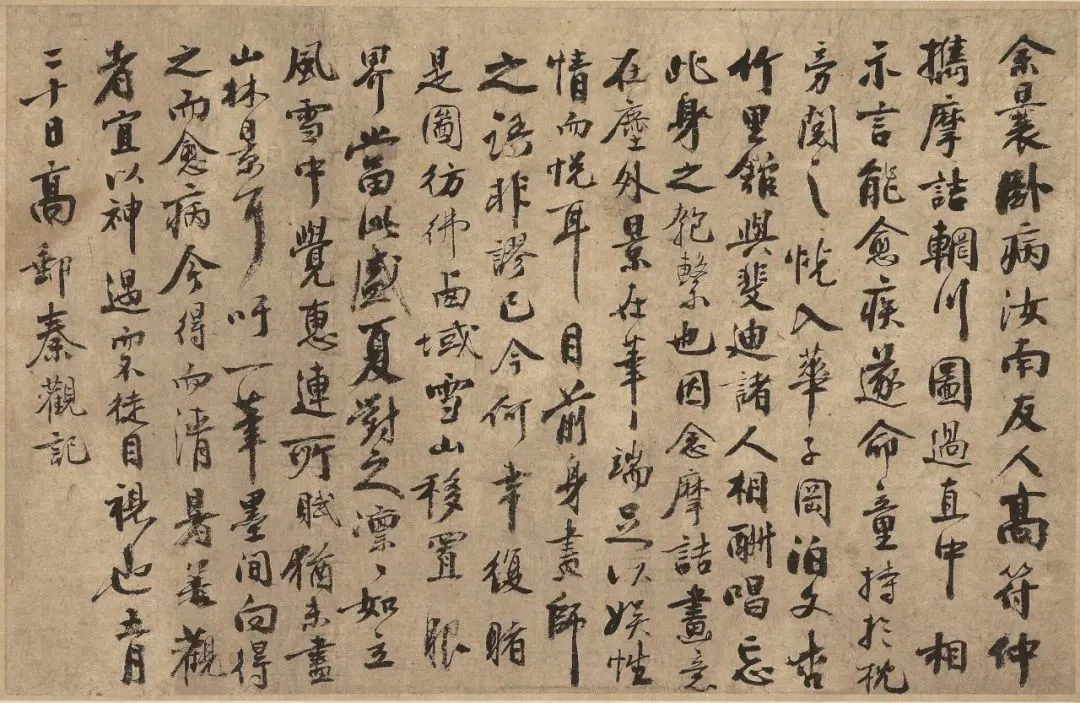 余曩卧病汝南友人高符仲
攜摩詰輞川圖過直中相
示言能愈疾遂命童持於枕
旁閱之恍入華子岡泊文杏
竹里館與斐迪諸人相酬唱忘
此身之匏繫也因念摩詰畫意
在塵外景在筆端足以娛性
情而悦耳目前身畫師
之語非謬已今何幸復睹
是圖彷彿西域雪山移置眼
界當此盛夏對之凛〻如立
風雪中覺惠連所賦猶未盡
山林景耳吁一筆墨間向得
之而愈病今得而清暑善觀
者宜以神遇而不徒目視也五月
二十日高郵秦觀記